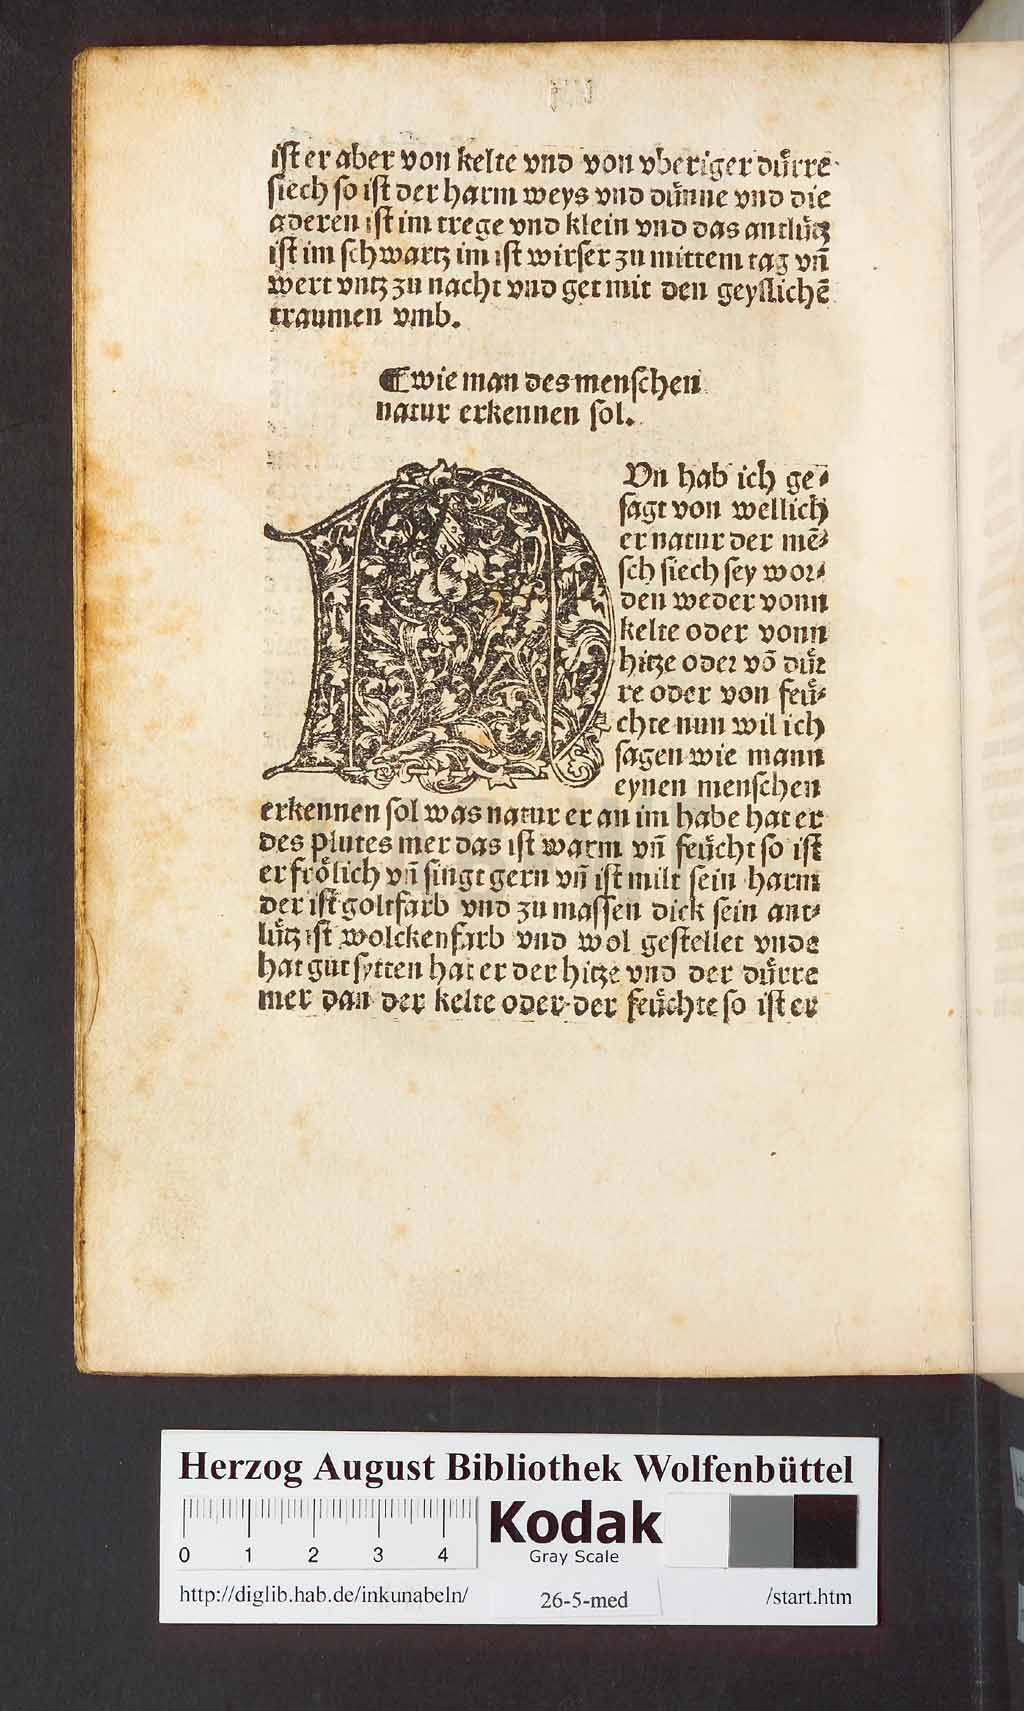 ist er aber von kelte vnd von vberiger duͤrre
siech so ist der harm weys vnd duͤnne vnd die
aderen ist im trege vnd klein vnd das antluͤtz
ist im schwartz im ist wirser zu mittem tag vn̄
wert vntz zu nacht vnd get mit den geystlichē
traumen vmb.
¶ wie man des menschen
natur erkennen sol.
NVn hab ich ge⸗
sagt von wellich
er natur der mē⸗
sch siech sey wor⸗
den weder vonn
kelte oder vonn
hitze oder vō duͤr
re oder von feuͤ⸗
chte nun wil ich
sagen wie mann
eynen menschen
erkennen sol was natur er an im habe hat er
des plutes mer das ist warm vn̄ feuͤcht so ist
er froͤlich vn̄ singt gern vn̄ ist milt sein harm
der ist goltfarb vnd zu massen dick sein ant⸗
luͤtz ist wolckenfarb vnd wol gestellet vnde
hat gut sytten hat er der hitze vnd der duͤrre
mer dan der kelte oder der feuͤchte so ist er
Herzog August Bibliothek Wolfenbüttel
0 1 2 3 4
Kodak
Gray Scale
http://diglib.hab.de/inkunabeln/ 26-5-med /start.htm